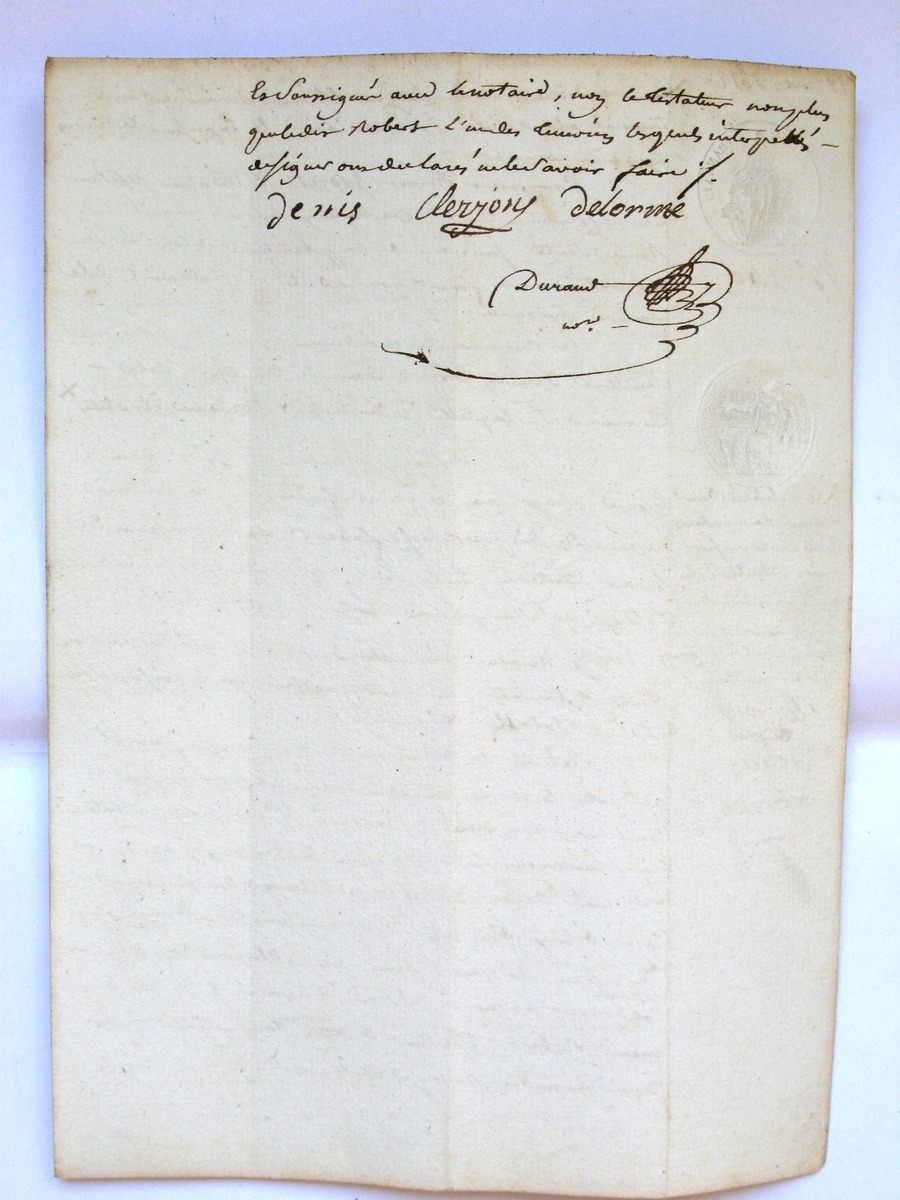 Et soussigné avec le notaire, non le testateur non plus
que ledit Robert l'un des temoins lesquels interpellés
de signer ont declarés ne le savoir faire /.
denis Clerjons delorme
Durand
nore